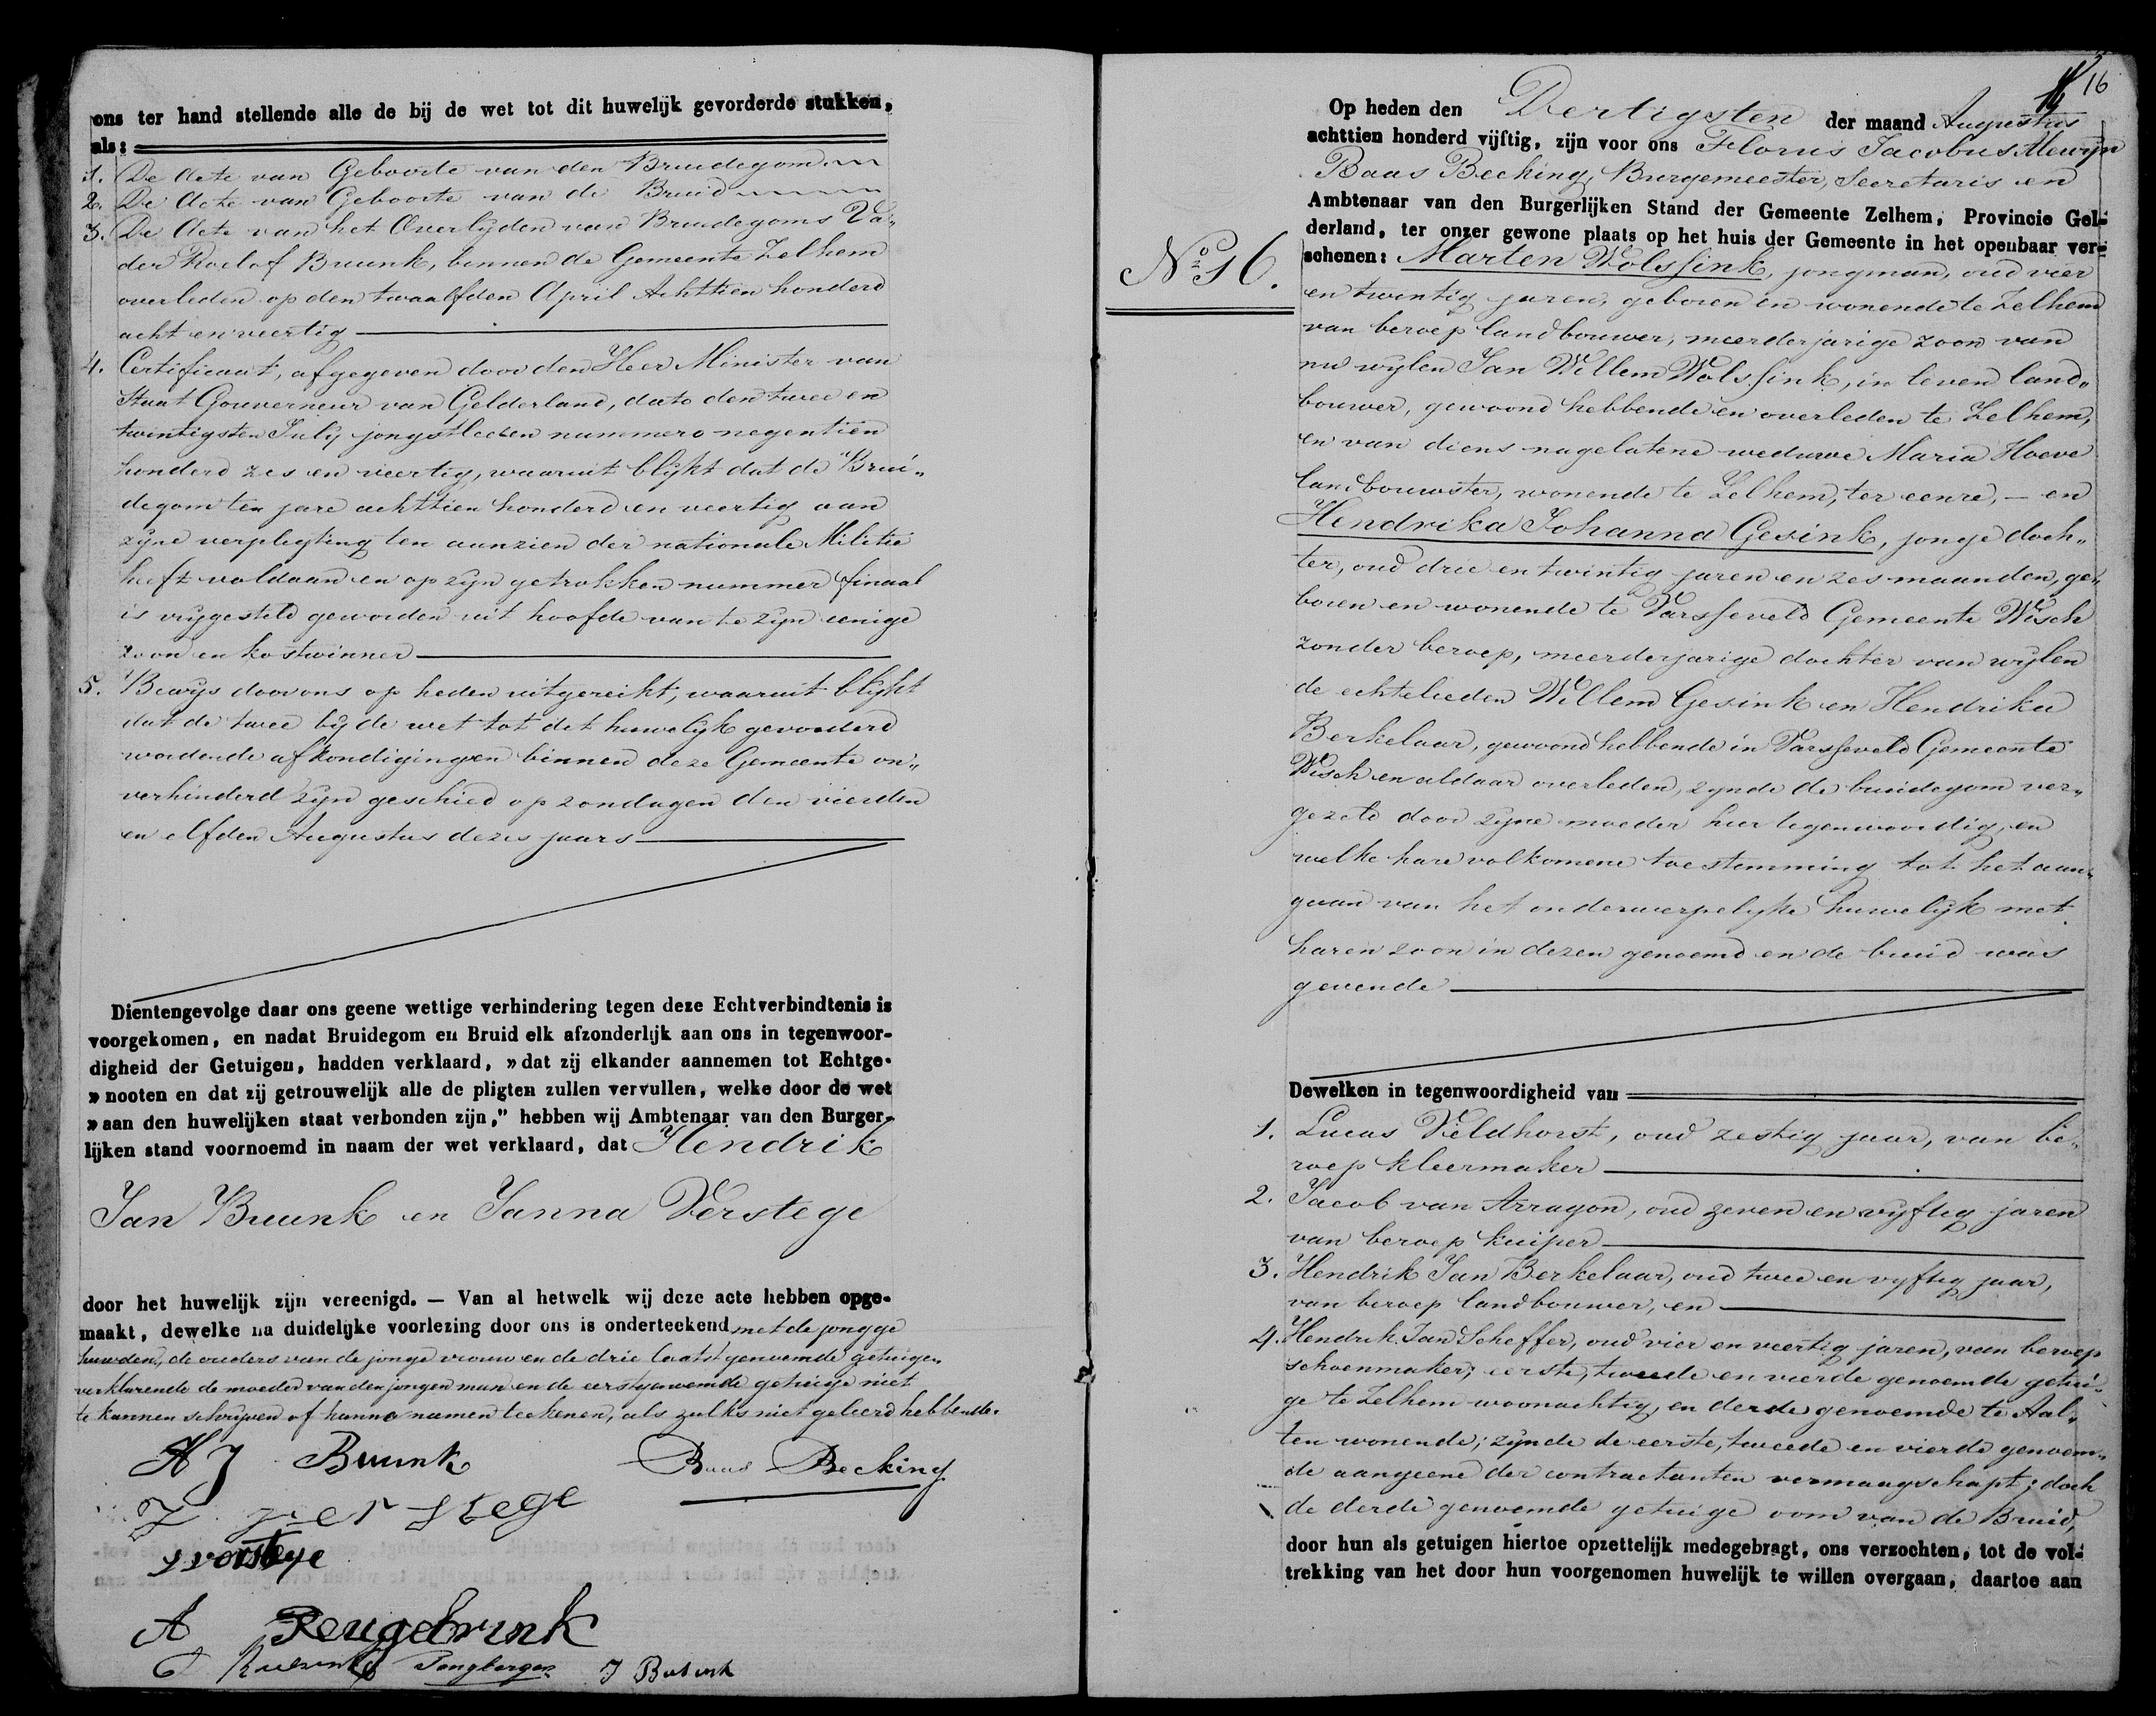 ons ter hand stellende alle de bij de wet tot dit huwelijk gevorderde stukken,
als:
1. De Acte van Geboorte van den Bruidegom
2. De Acte van Geboorte van de Bruid
3. De Acte van het Overlyden van Bruidegoms Va„
der Roelof Bruunk, binnen de Gemeente Zelhem
overleden op den twaalfden April Achttien honderd
acht en veertig
4. Certificaat, afgegeven door den Heer Minister van
Staat Gouverneur van Gelderland, dato den twee en
twintigsten July jongstleden nummero negentien
honderd zes en veertig, waaruit blijkt dat de Brui„
degom ten jare achttien honderd en veertig aan
zijne verpligting ten aanzien der nationale Militie
heeft voldaan en op zijn getrokken nummer finaal
is vrijgesteld geworden uit hoofde van te zijn eenige
zoon en kostwinner
5. Bewijs door ons op heden uitgereikt, waaruit blijkt
dat de twee bij de wet tot dit huwelijk gevorderd
wordende afkondigingen binnen deze Gemeente on„
verhinderd zijn geschied op zondagen den vierden
en elfden Augustus dezes jaars
Dientengevolge daar ons geene wettige verhindering tegen deze Echtverbindtenis is
voorgekomen, en nadat Bruidegom en Bruid elk afzonderlijk aan ons in tegenwoor-
digheid der Getuigen, hadden verklaard, »dat zij elkander aannemen tot Echtge-
»nooten en dat zij getrouwelijk alle de pligten zullen vervullen, welke door de wet
»aan den huwelijken staat verbonden zijn,” hebben wij Ambtenaar van den Burger-
lijken stand voornoemd in naam der wet verklaard, dat Hendrik
Jan Bruunk en Janna Verstege
door het huwelijk zijn vereenigd. — Van al hetwelk wij deze acte hebben opge-
maakt, dewelke na duidelijke voorlezing door ons is onderteekend, met de jongge
huwden, de ouders van de jonge vrouw en de drie laatst genoemde getuigen
verklarende de moeder van den jongen man en de eerstgenoemde getuige niet
te kunnen schrijven of hunne namen teekenen, als zulks niet geleerd hebbende.
H J Bruunk Baas Becking
J ver stege
A Reugebrink
16
Op heden den Dertigsten der maand Augustus
achttien honderd vijftig, zijn voor ons Floris Jacobus Alewijn
Baas Becking, Burgemeester, Secretaris en
Ambtenaar van den Burgerlijken Stand der Gemeente Zelhem, Provincie Gel-
derland, ter onzer gewone plaats op het huis der Gemeente in het openbaar ver-
No 16.
schenen: Marten Wolssink, jongman, oud vier
en twintig jaren, geboren en wonende te Zelhem
van beroep landbouwer, meerderjarige zoon van
nu wijlen Jan Willem Wolssink, in leven land„
bouwer, gewoond hebbende en overleden te Zelhem,
en van diens nagelatene weduwe Maria Hoeve
landbouwster, wonende te Zelhem, ter eenre, — en
Hendrika Johanna Gesink, jonge doch„
ter, oud drie en twintig jaren en zes maanden, ge„
boren en wonende te Varsseveld Gemeente Wisch
zonder beroep, meerderjarige dochter van wijlen
de echtelieden Willem Gesink en Hendrika
Berkelaar, gewoond hebbende in Varsseveld Gemeente
Wisch en aldaar overleden, zynde de bruidegom ver„
gezeld door zijne moeder hier tegenwoordig, en
welke hare volkomene toestemming tot het aan„
gaan van het onderwerpelyke huwelijk met
haren zoon in dezen genoemd en de bruid was
gevende
Dewelken in tegenwoordigheid van
1. Lucas Veldhorst, oud zestig jaar, van be„
roep kleermaker
2. Jacob van Arragon, oud zeven en vyftig jaren
van beroep kuiper
3. Hendrik Jan Berkelaar, oud twee en vyftig jaar,
van beroep landbouwer, en
4. Hendrik Jan Scheffer, oud vier en veertig jaren, van beroep
schoenmaker; eerste, tweede en vierde genoemde getui„
ge te Zelhem woonachtig, en derde genoemde te Aal„
ten wonende; zijnde de eerste, tweede en vierde genoem„
de aangeene der contractanten vermaagschapt; doch
de derde genoemde getuige oom van de Bruid,
door hun als getuigen hiertoe opzettelijk medegebragt, ons verzochten, tot de vol-
trekking van het door hun voorgenomen huwelijk te willen overgaan, daartoe aan